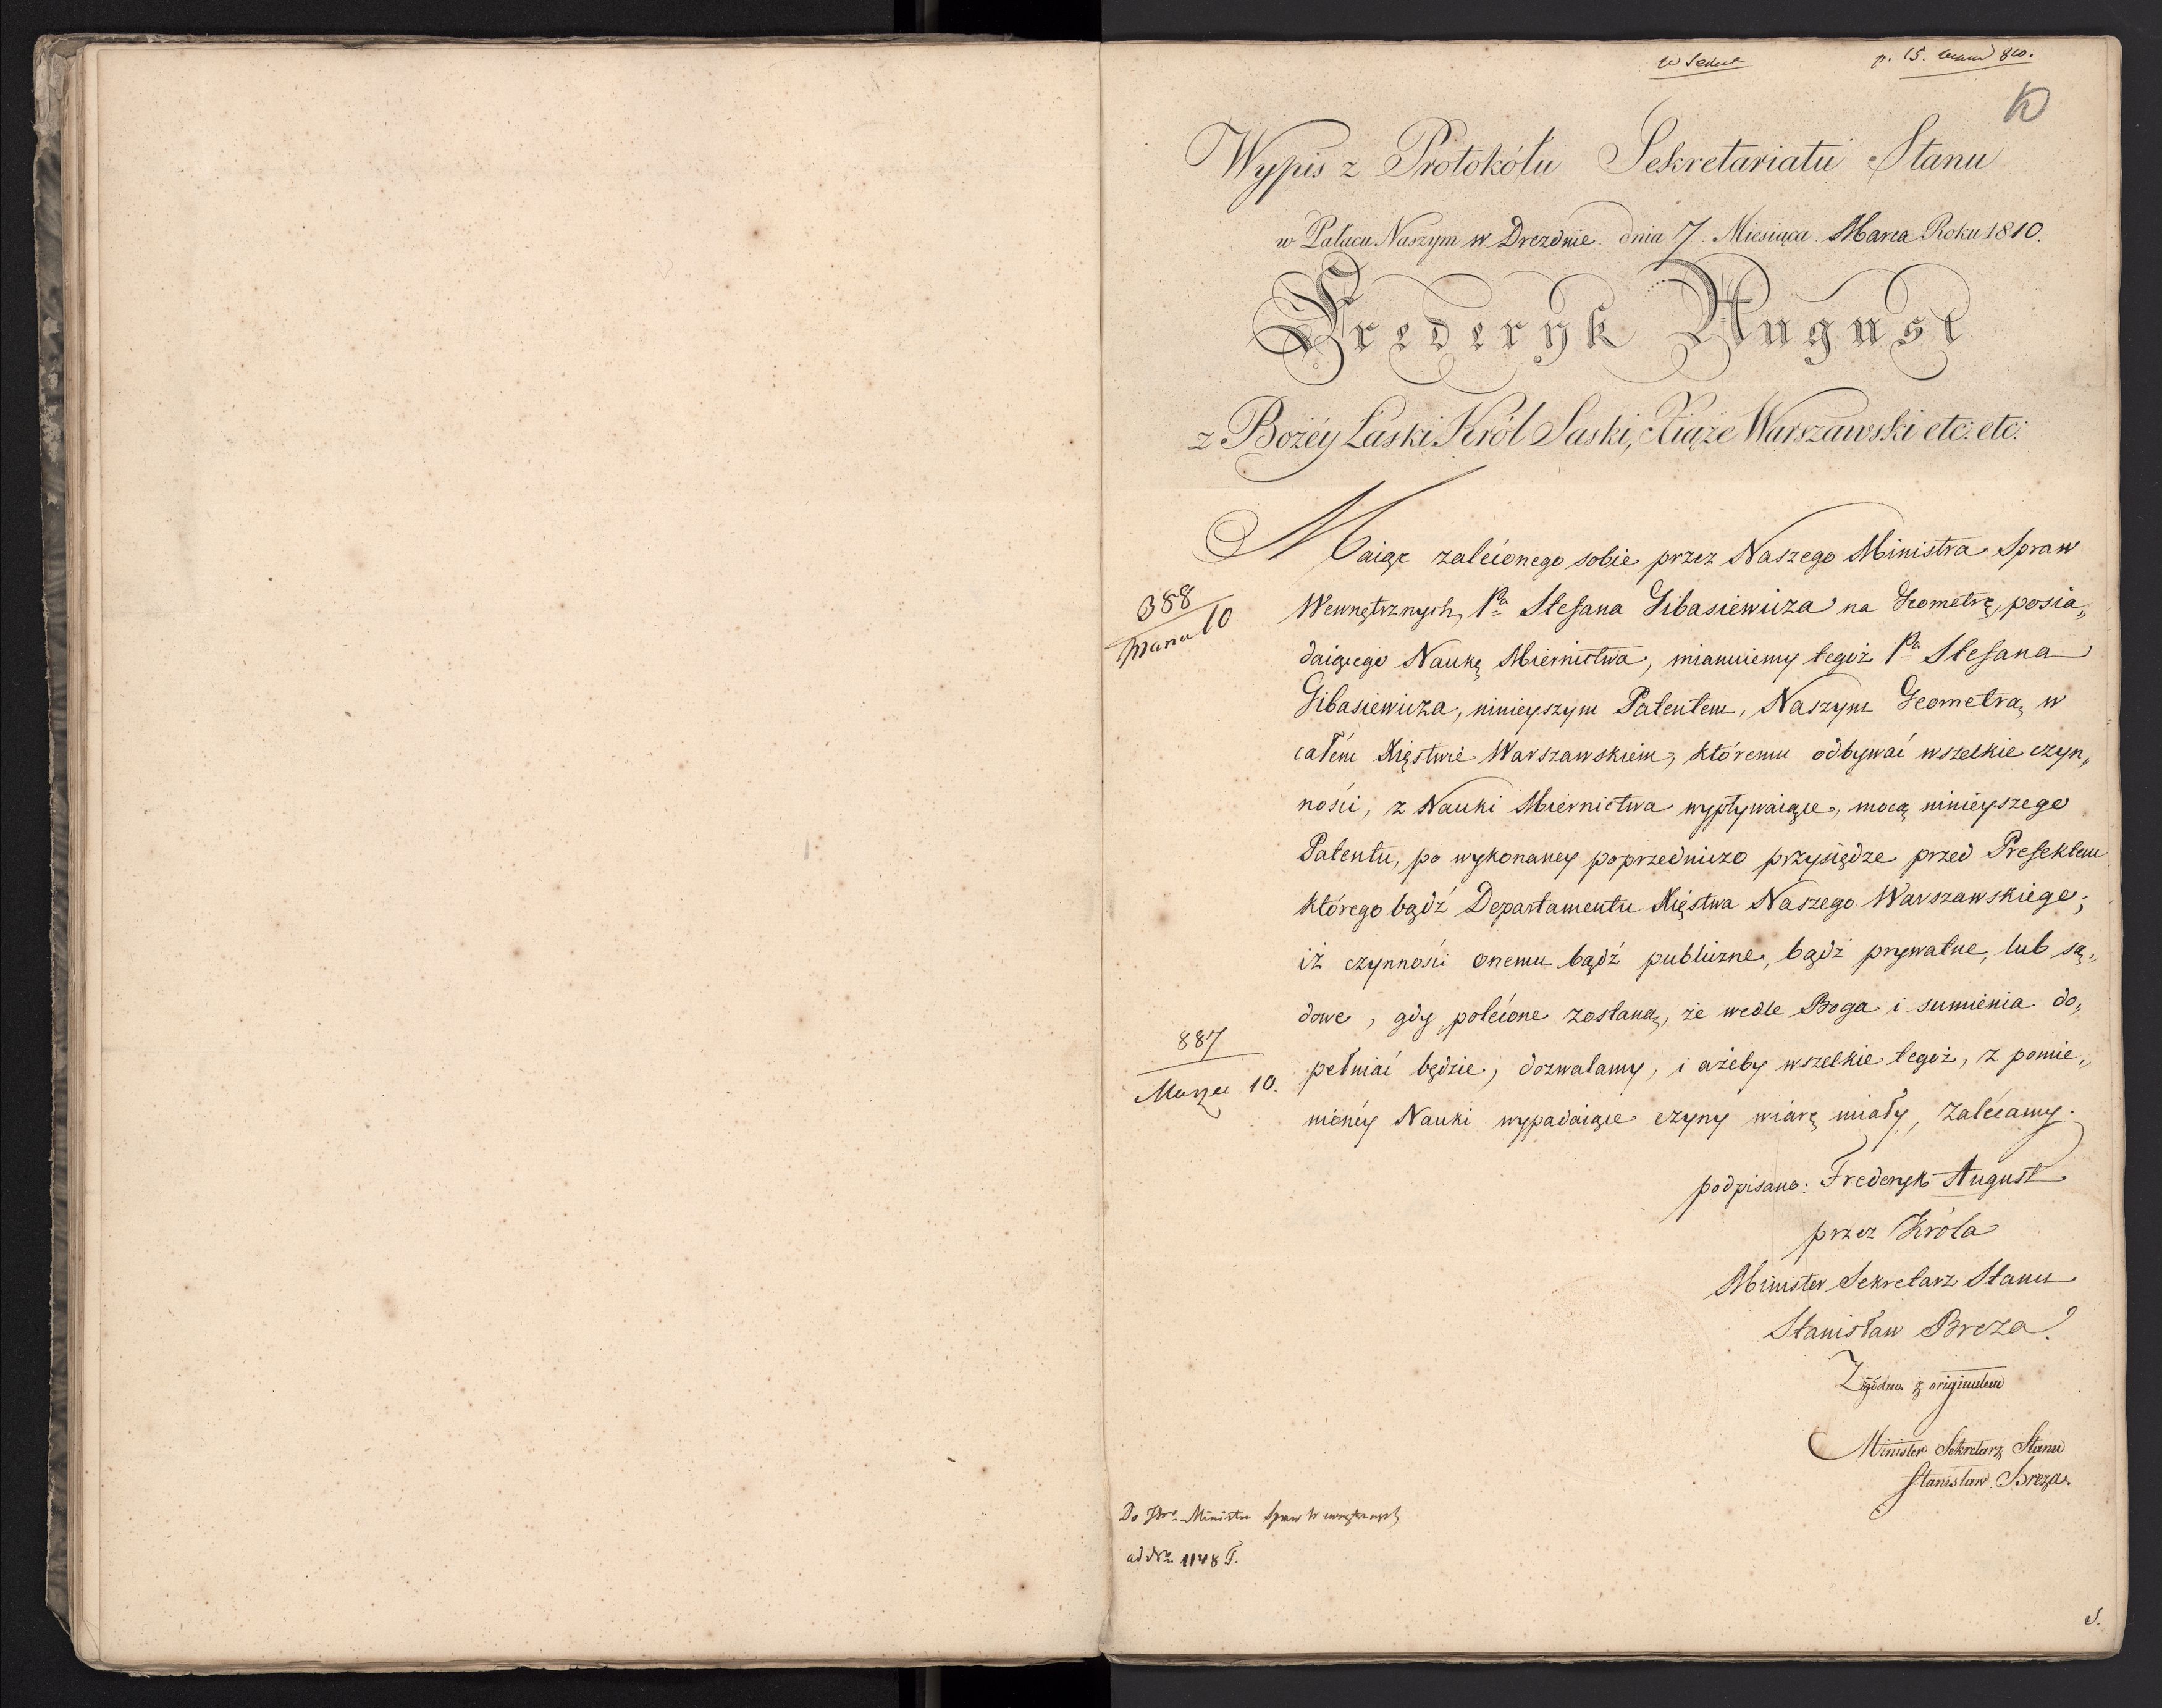 p. 15. 810.
10
Wypis z Protokółu Sekretariatu Stanu
w Pałacu Naszym w Drezdnie dnia 7. Miesiąca Marca Roku 1810.
Frederyk August
z Bożéy Łaski Król Saski, Xiąże Warszawski etc: etc:
Maiąc zalécionego sobie przez Naszego Ministra Spraw
Wewnętrznych, Pa Stefana Gibasiewicza na Geometrę, posia„
daiącego Naukę Miernictwa, mianuiemy tegoż Pa Stefana
Gibasiewicza, ninieyszym Patentem, Naszym Geometrą, w
całém Xięstwie Warszawskiem, któremu odbywać wszelkie czyn„
ności, z Nauki Miernictwa wypływaiące, mocą ninieyszego
Patentu, po wykonaney poprzedniczo przysiędze przed Prefektem
którego bądź Departamentu Xięstwa Naszego Warszawskiego;
iż czynności onemu bądź publiczne, bądź prywatne, lub są„
dowe, gdy polécone zostaną, że wedle Boga i sumienia do„
pełniać będzie, dozwalamy, i ażeby wszelkie tegoż, z pomie„
nionéy Nauki wypadaiące czyny wiarę miały, zalécamy.
388
Marca 10
887
Marzec 10.
podpisano: Frederyk August
przez Króla
Minister Sekretarz Stanu
Stanisław Breza.
Zgodno z originałem
Minister Sekretarz Stanu
Stanisław Breza.
Do Ministra Spraw Wewnętrznych
ad No 1148 F.
S.